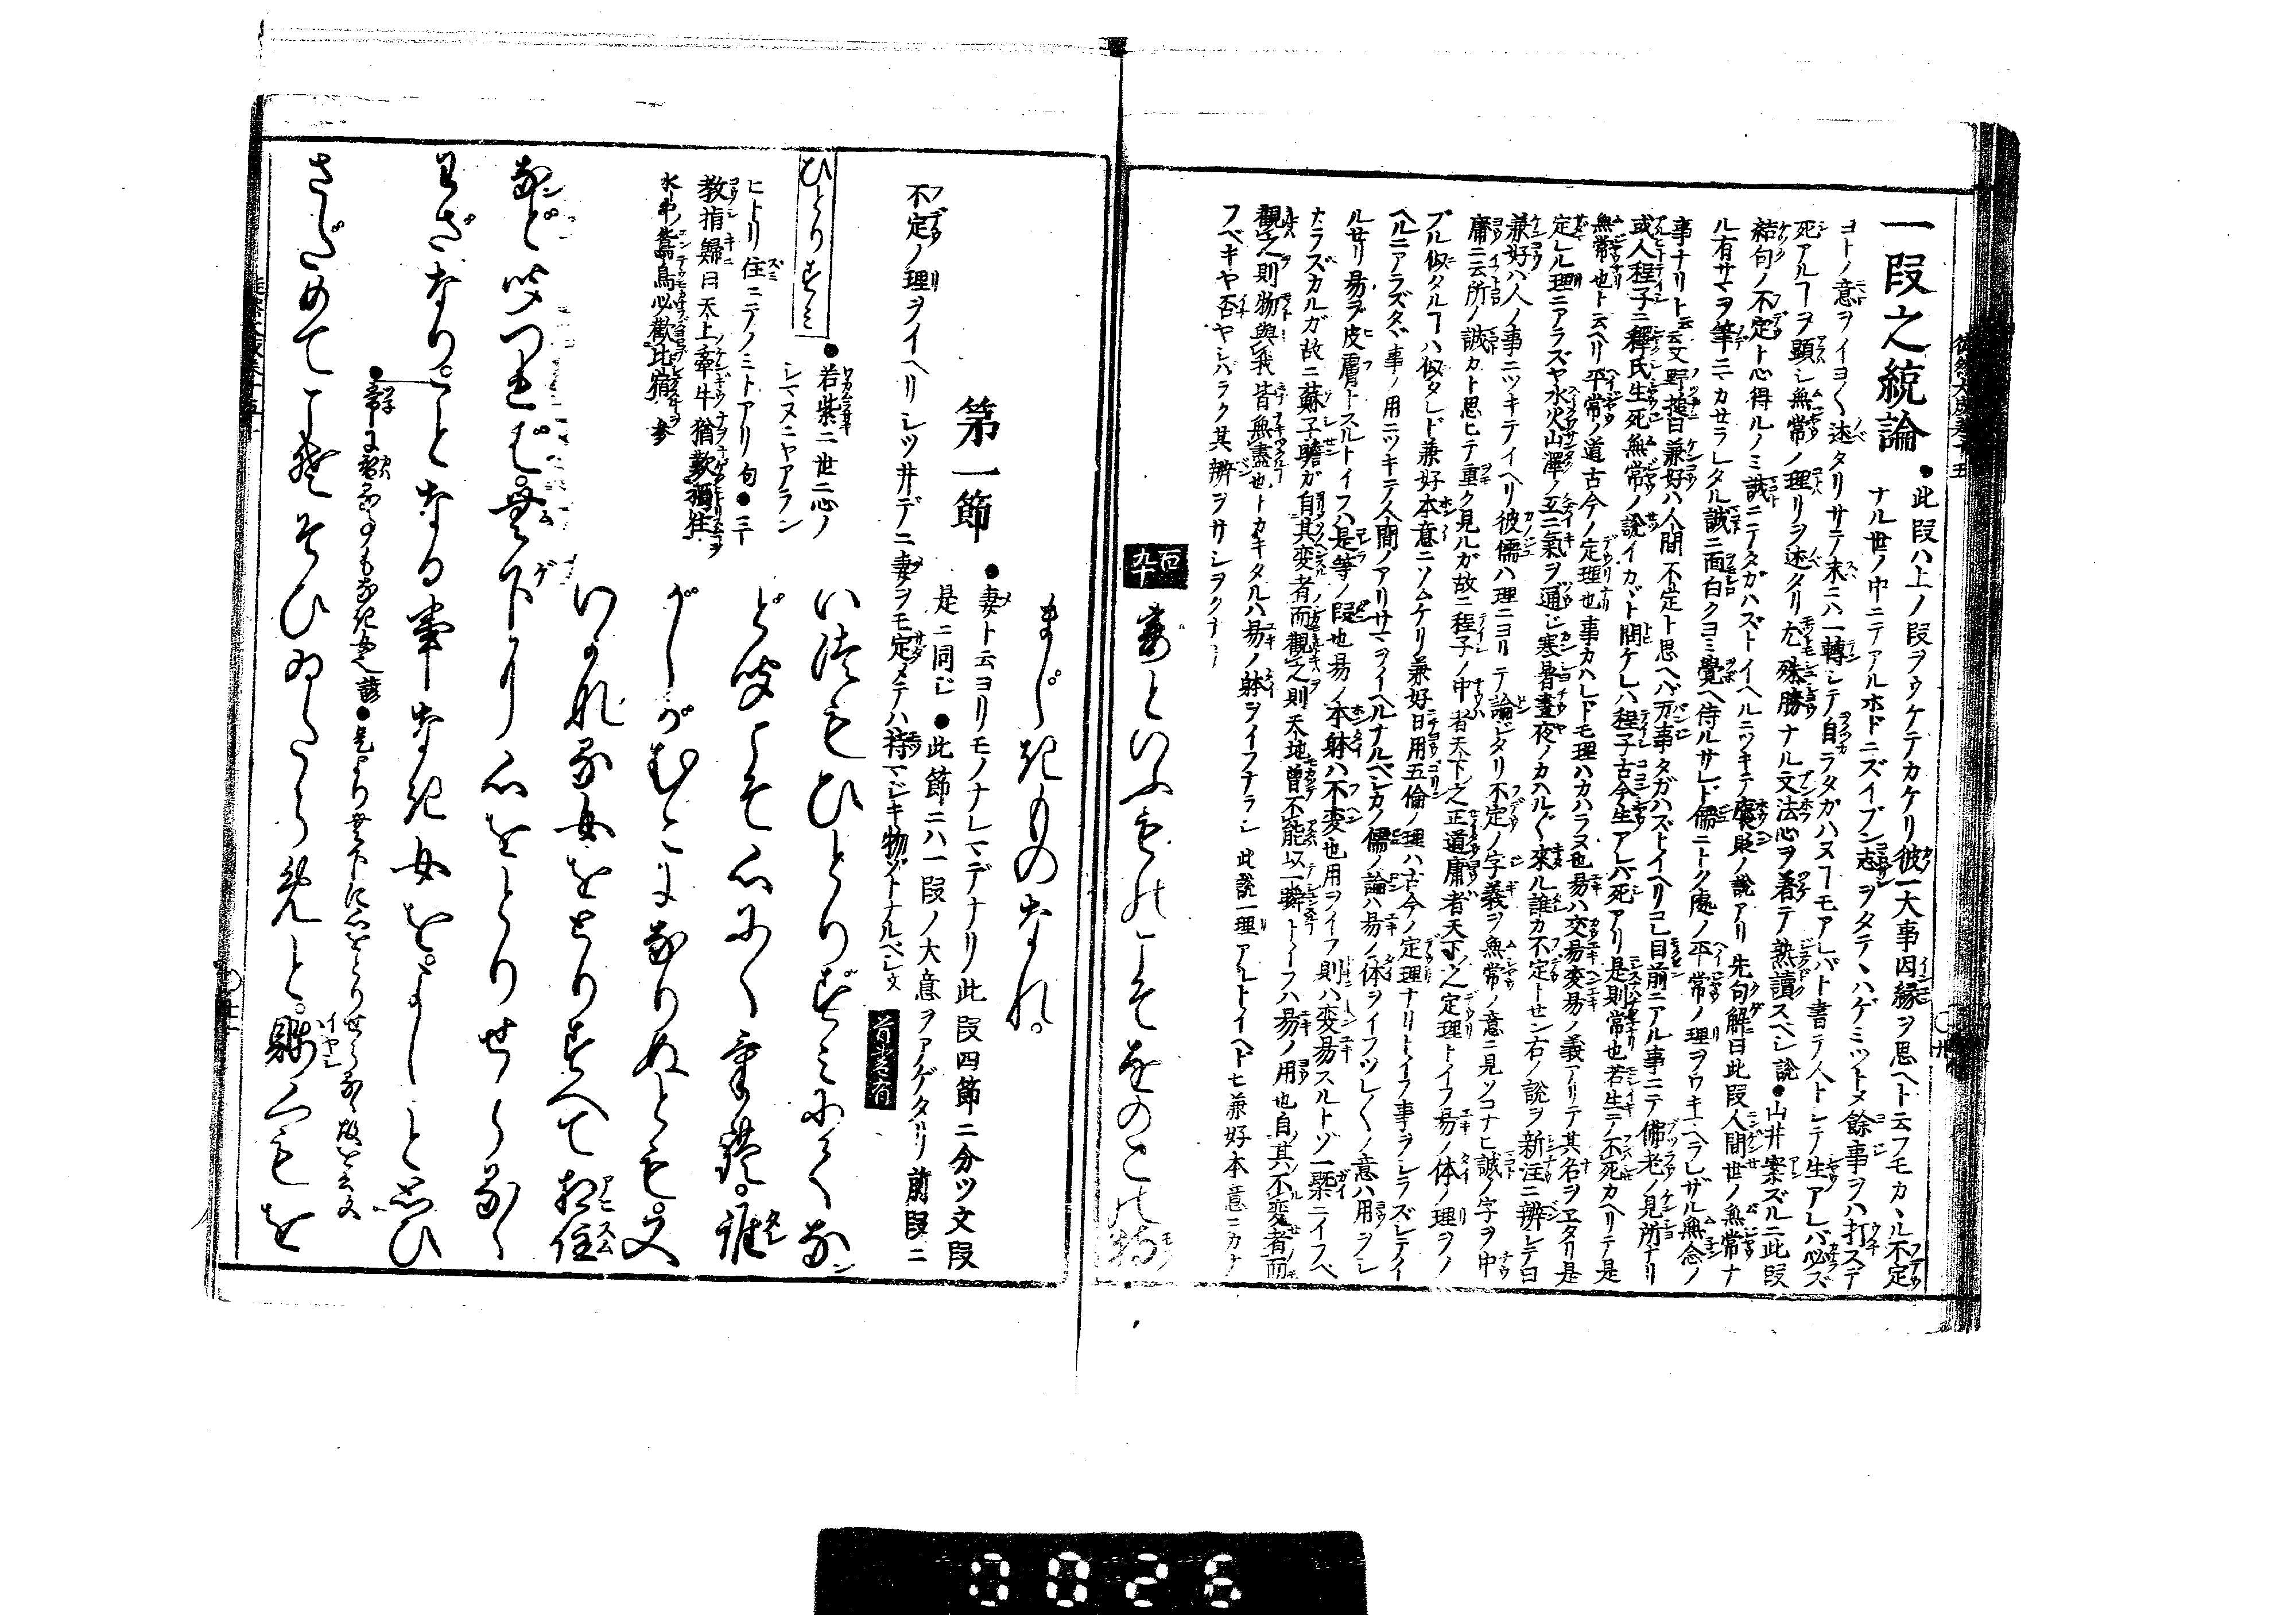 一段之統論
●此段ハ上ノ段ヲウケテカケリ彼一大事因縁ヲ思ヘト云フモカヽル不定
ナル世ノ中ニテアルホドニズイブン志ヲタテヽハゲミツトメ餘事ヲハ打ステ
ヨトノ意ヲイヨ〱述タリサテ末ニハ一轉シテ自ラタガハヌヿモアレバト書テ人トシテ生アレバ必ズ
死アルヿヲ顕シ無常ノ理リヲ述タリ尤殊勝ナル文法心ヲ着テ熟讀スベシ諺●山井案ズルニ此段
結句ノ不定ト心得ルノミ誠ニテタガハズトイヘルニツキテ褒貶ノ説アリ先句解ニ曰此段人間世ノ無常ナ
ル有サマヲ筆ニマカセラレタル誠ニ面白クヨミ覺ヘ侍ルサレド儒ニトク處ノ平常ノ理ヲワキマヘラレザル無念ノ
事ナリト云云又野槌曰兼好ハ人間不定ト思ヘバ万事タガハズトイヘリコレ目前ニアル事ニテ佛老ノ見所ナリ
或人程子ニ釋氏生死無常ノ説イカヾト問ケレハ程子古今生アレバ死アリ是則常也若生テ不死カヘリテ是
無常也ト云ヘリ平常ノ道古今ノ定理也事カハレドモ理ハカハラヌ也易ハ交易変易ノ義アリテ其名ヲヱタリ是
定レル理ニアラズヤ水火山澤ノ互ニ氣ヲ通シ寒暑晝夜ノカハル〲來ル誰カ不定トセン右ノ説ヲ新注ニ辨シテ曰
兼好ハ人ノ事ニツキテイヘリ彼儒ハ理ニヨリテ論ジタリ不定ノ字義ヲ無常ノ意ニ見ソコナヒ誠ノ字ヲ中
庸ニ云所ノ誠カト思ヒテ重ク見ルガ故ニ程子ノ中者天下之正道庸者天下之定理トイフ易ノ体ノ理ヲノ
ブル似タルヿハ似タレド兼好本意ニソムケリ兼好日用五倫ノ理ハ古今ノ定理ナリトイフ事ヲシラズシテイ
ヘルニアラズタヾ事ノ用ニツキテ人間ノアリサマヲイヘルナルベシカノ儒ノ論ハ易ノ体ヲイフツレ〱ノ意ハ用ヲシ
ルセリ易ヲ皮膚トスルトイフハ是等ノ段也易ノ本躰ハ不変也用ヲイフ則ハ変易スルトゾ一槩ニイフベ
カラズカルガ故ニ蘇子瞻ガ自其変者而觀之則天地曽不能以一瞬トイフハ易ノ用也自其不変者而
觀之則物與我皆無盡也トカキタルハ易ノ躰ヲイフナラン此説一理アルトイヘドモ兼好本意ニカナ
フベキヤ否ヤシバラク其辨ヲサシヲクナリ
百九十
妻といふものこそをのこの持
まじきものなれ。
第一節
●妻ト云ヨリモノナレマデナリ此段四節ニ分ツ文段
是ニ同ジ●此節ニハ一段ノ大意ヲアゲタリ前段ニ
不定ノ理ヲイヘリシツ井デニ妻ヲモ定メテハ待マジキ物ゾトナルベシ文
ひとりずみ
い徒もひとりずみにてな
ど聞こそ心にくけれ。誰
がしがむこになりぬとも。又
いかなる女をとりすへて相住
●若紫ニ世ニ心ノ
シマヌニヤアラン
ヒトリ住ニテノミトアリ句●三
教指歸曰天上牽牛猶歎獨住
水中鴛鳥必歡比宿 参
など聞つれば。無下に心をとりせらるゝ
わざなり。ことなる事なき女を。よしと思ひ
●常に替るもなき也諺●是より無下に心をとりせらるゝ故を云文
さだめてこそそひゐたらめと。賤くもを
徒然大成巻十五
0026